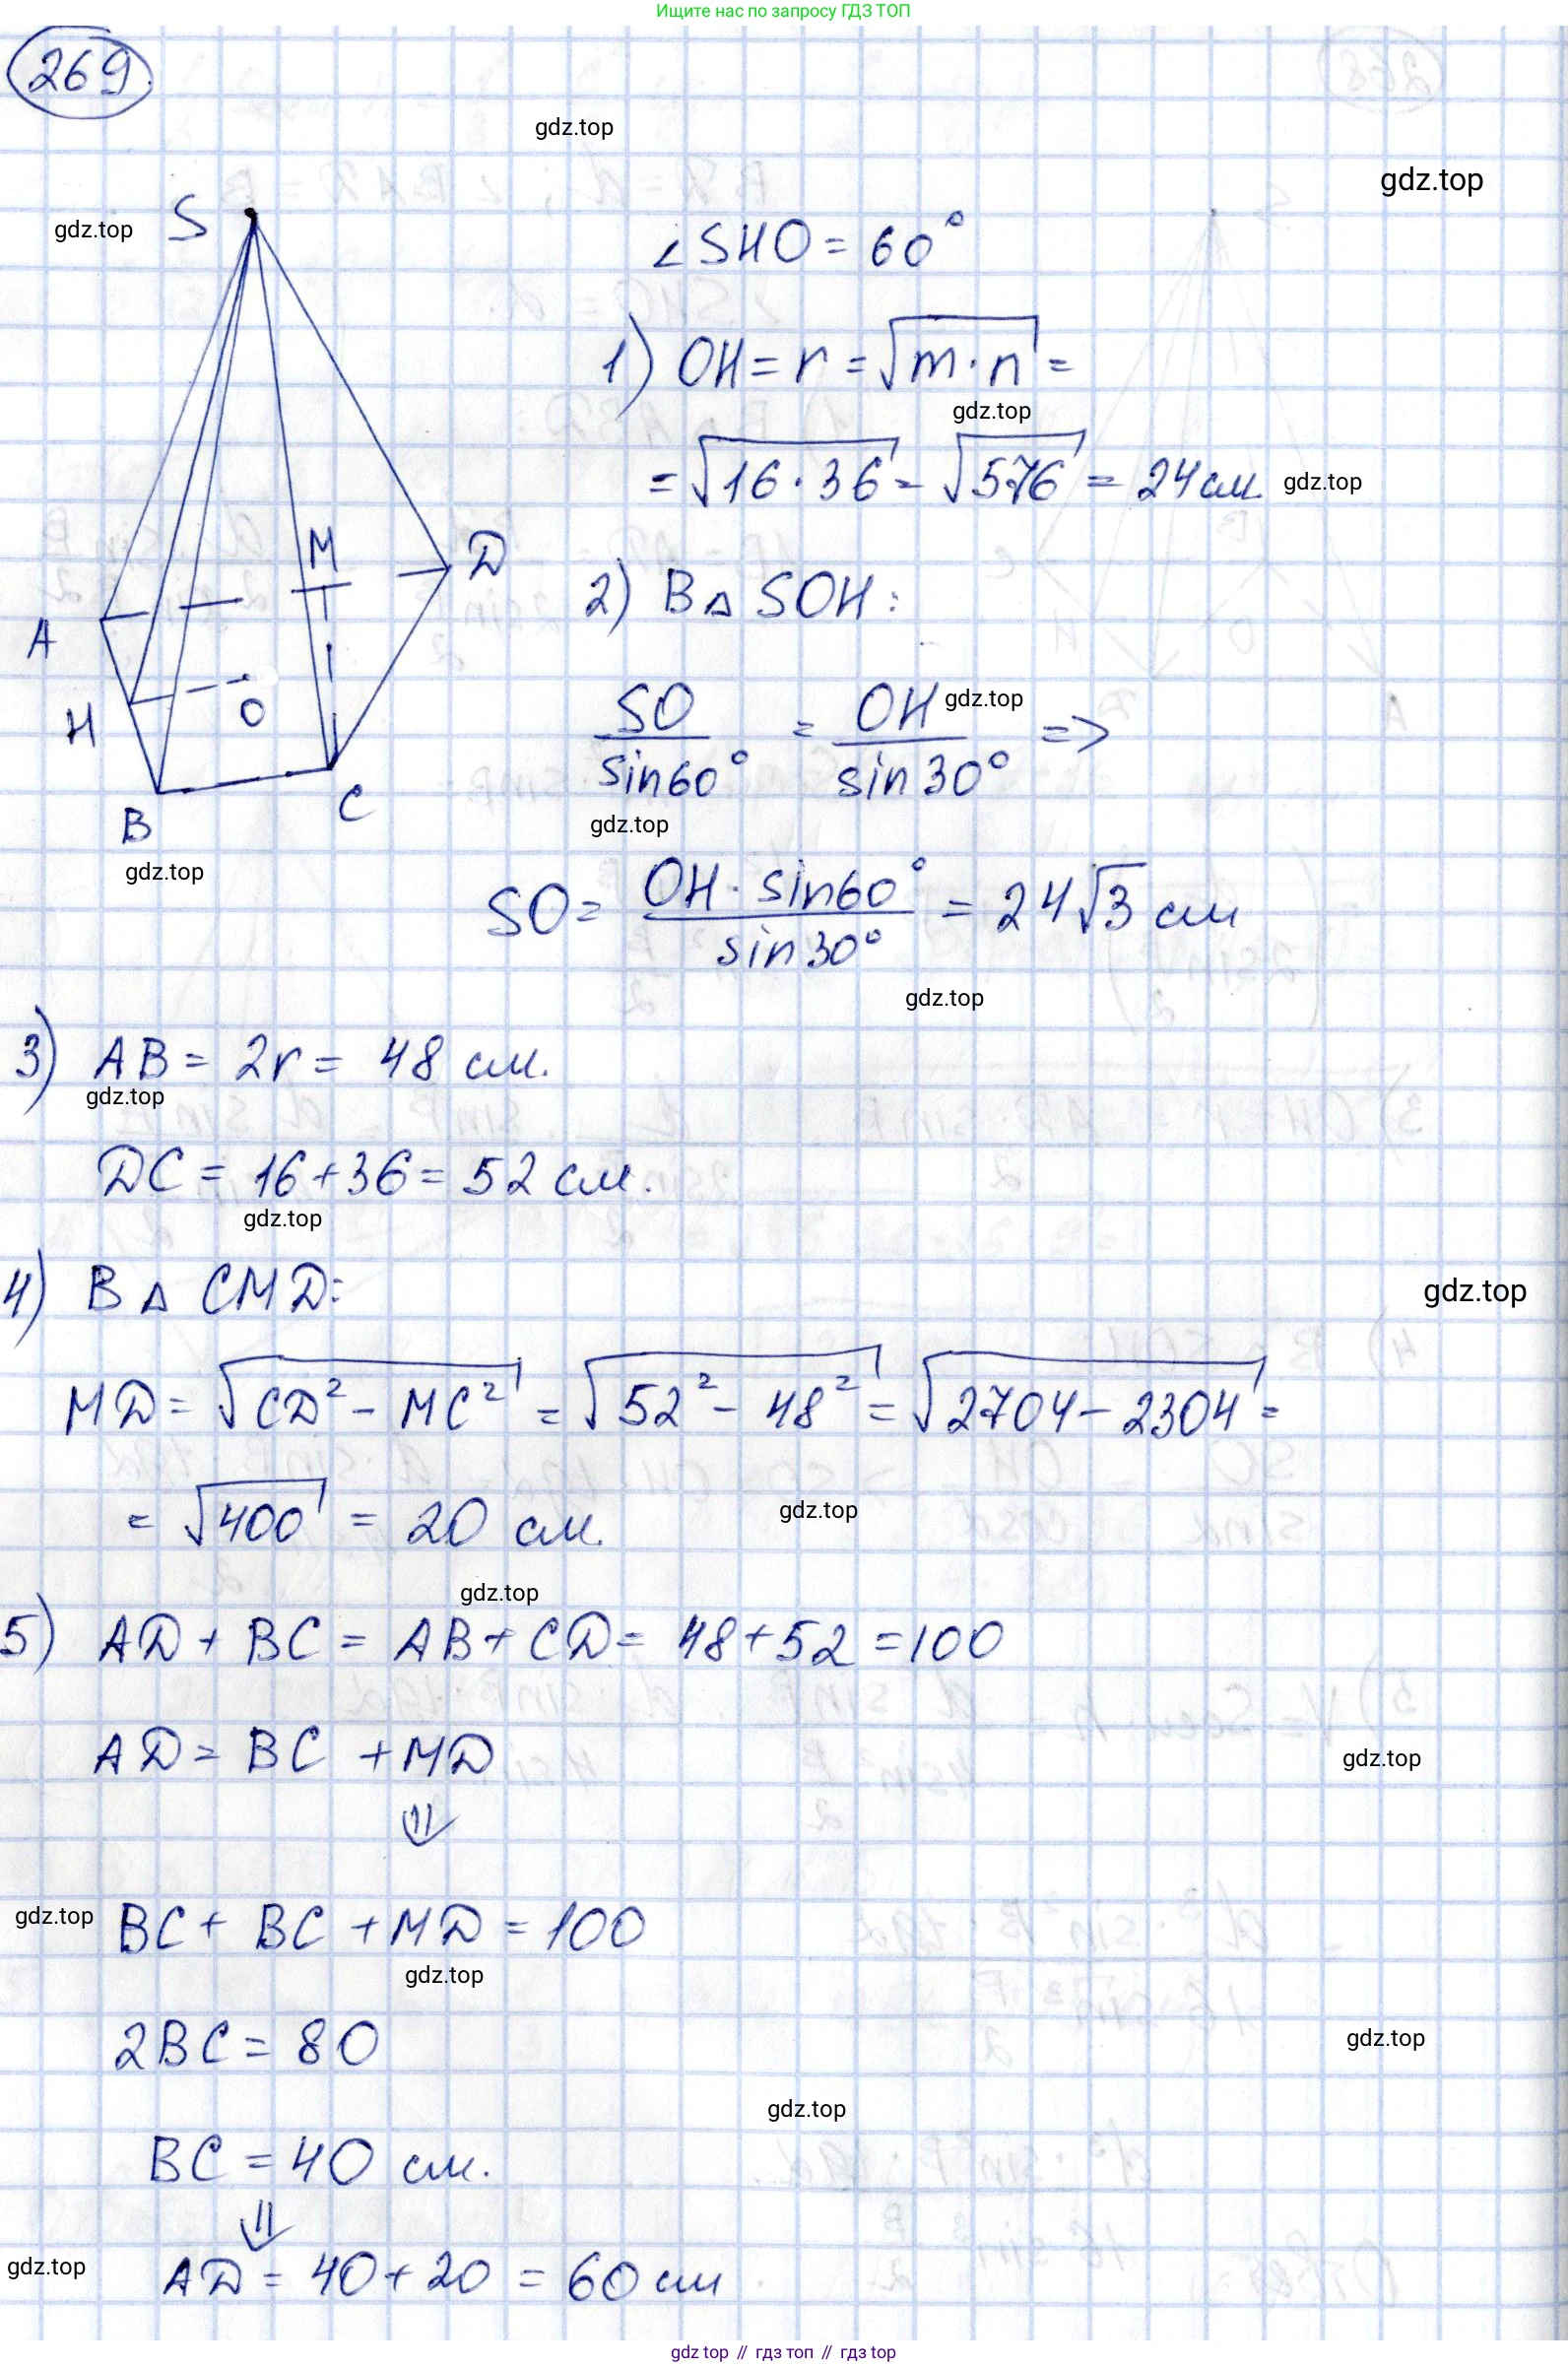 Ищите нас по запросу ГДЗ ТОП
269
gdz.top
gdz.top
gdz.top
S
∠SHO = 60°
1) OH = r = √m·n =
gdz.top
= √16·36 = √576 = 24 см.
gdz.top
M
D
A
H
O
B
C
2) В △ SOH:
SO/sin60° = OH/sin30° =>
gdz.top
gdz.top
gdz.top
SO = OH·sin60°/sin30° = 24√3 см
gdz.top
3) AB = 2r = 48 см.
gdz.top
DC = 16+36 = 52 см.
gdz.top
4) В △ CMD:
gdz.top
MD = √CD² - MC² = √52² - 48² = √2704 - 2304 =
= √400 = 20 см.
gdz.top
gdz.top
5) AD + BC = AB + CD = 48+52 = 100
AD = BC + MD
gdz.top
⇓
gdz.top
BC + BC + MD = 100
gdz.top
2BC = 80
gdz.top
gdz.top
BC = 40 см.
⇓
gdz.top
AD = 40+20 = 60 см
gdz top // гдз топ // гдз top